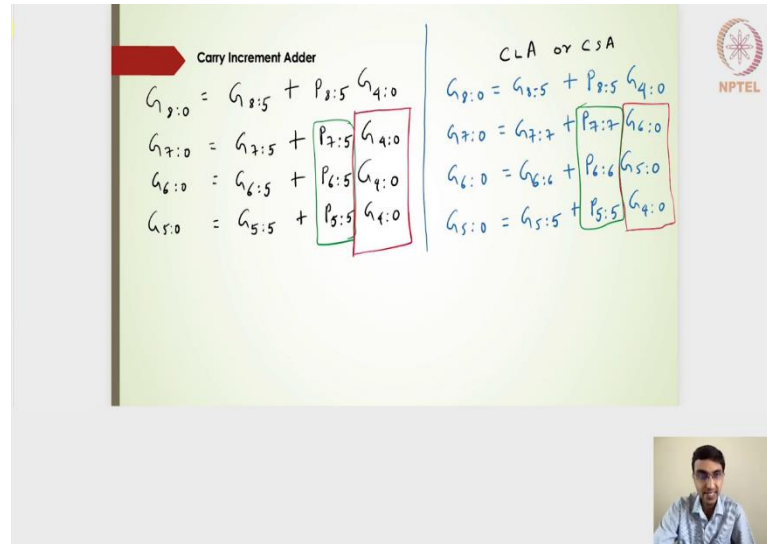 Carry Increment Adder
G8:0 = G8:5 + P8:5 G4:0
G7:0 = G7:5 + P7:5 G4:0
G6:0 = G6:5 + P6:5 G4:0
G5:0 = G5:5 + P5:5 G4:0
CLA or CSA
G8:0 = G8:5 + P8:5 G4:0
G7:0 = G7:7 + P7:7 G6:0
G6:0 = G6:6 + P6:6 G5:0
G5:0 = G5:5 + P5:5 G4:0
NPTEL